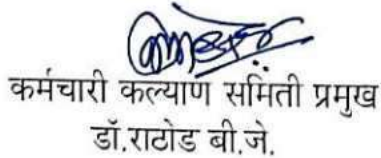 कर्मचारी कल्याण समिती प्रमुख
डॉ.राठोड बी.जे.